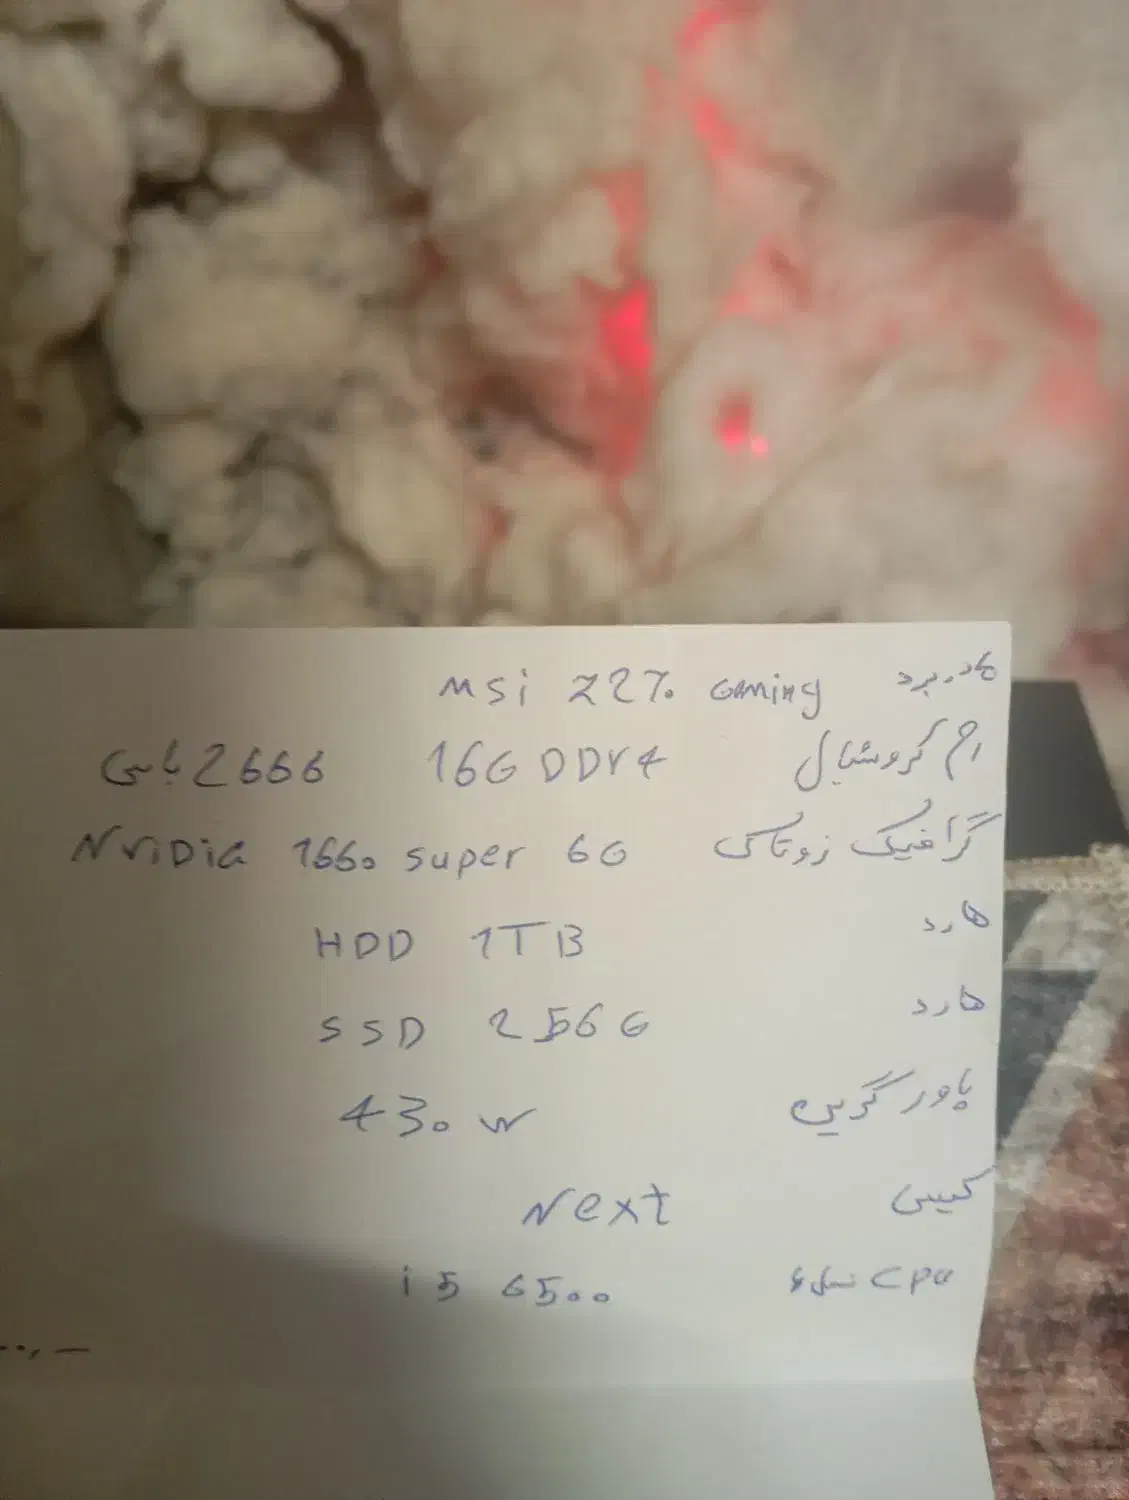 مادربرد MSi Z27. Gaming
رم کروشیال 16G DDr4 2666 باس
گرافیک زوتاک Nvidia 166۰ super 6G
هارد HDD 1TB
هارد SSD 256G
پاور گرین 43۰ w
کیس Next
cpu نسل ۶ i5 65۰۰